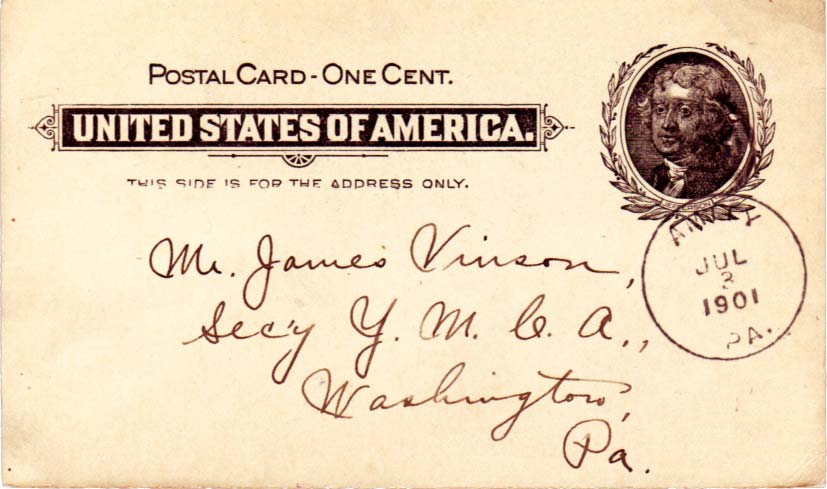 POSTAL CARD - ONE CENT.
UNITED STATES OF AMERICA.
THIS SIDE IS FOR THE ADDRESS ONLY.
JEFFERSON
AMITY
JUL
3
1901
PA.
Mr. James Vinson,
Sec'y Y. M. C. A.,
Washington,
Pa.